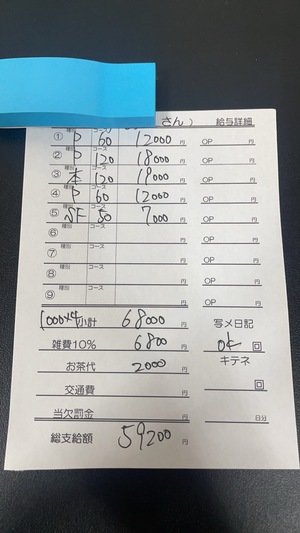 さん） 給与詳細
① 種別 P コース 60 12000円 OP 円
② 種別 P コース 120 18000円 OP 円
③ 種別 本 コース 120 19000円 OP 円
④ 種別 P コース 60 12000円 OP 円
⑤ 種別 SF コース 50 7000円 OP 円
⑥ 種別 コース 円 OP 円
⑦ 種別 コース 円 OP 円
⑧ 種別 コース 円 OP 円
⑨ 種別 コース 円 OP 円
1000×4 小計 68000円 写メ日記
雑費10% 6800円 ok 回
お茶代 2000円 キテネ
交通費 円 回
当欠罰金 円 日分
総支給額 59200円